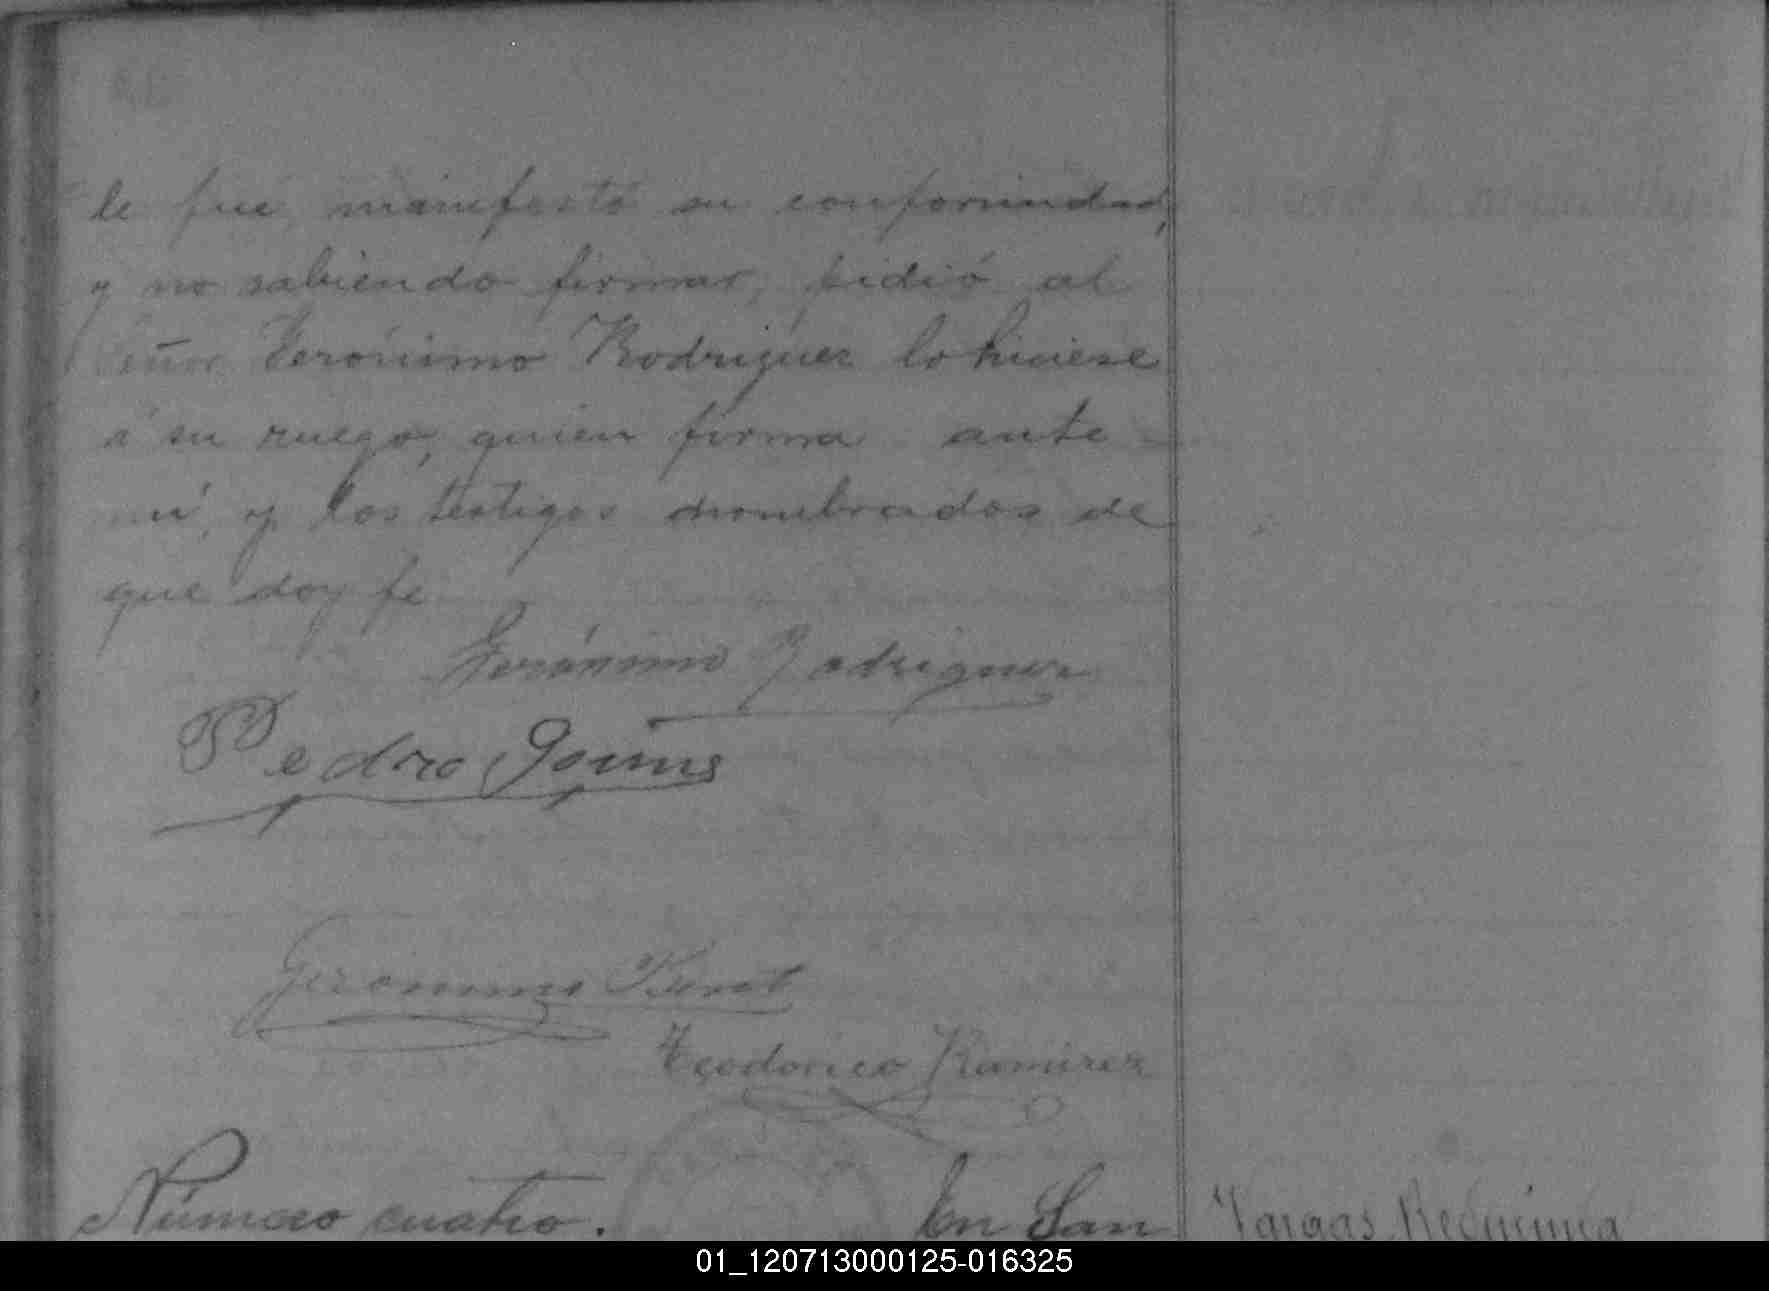 le fue, manifestó su conformidad,
y no sabiendo firmar, pidió al
Señor Gerónimo Rodriguez lo hiciese
á su ruego, quien firma ante
mi, y los testigos nombrados de
que doy fe
Gerónimo Rodriguez
Pedro
Geronimo
Teodorico Ramirez
Número cuatro. En San
Vargas
01_120713000125-016325